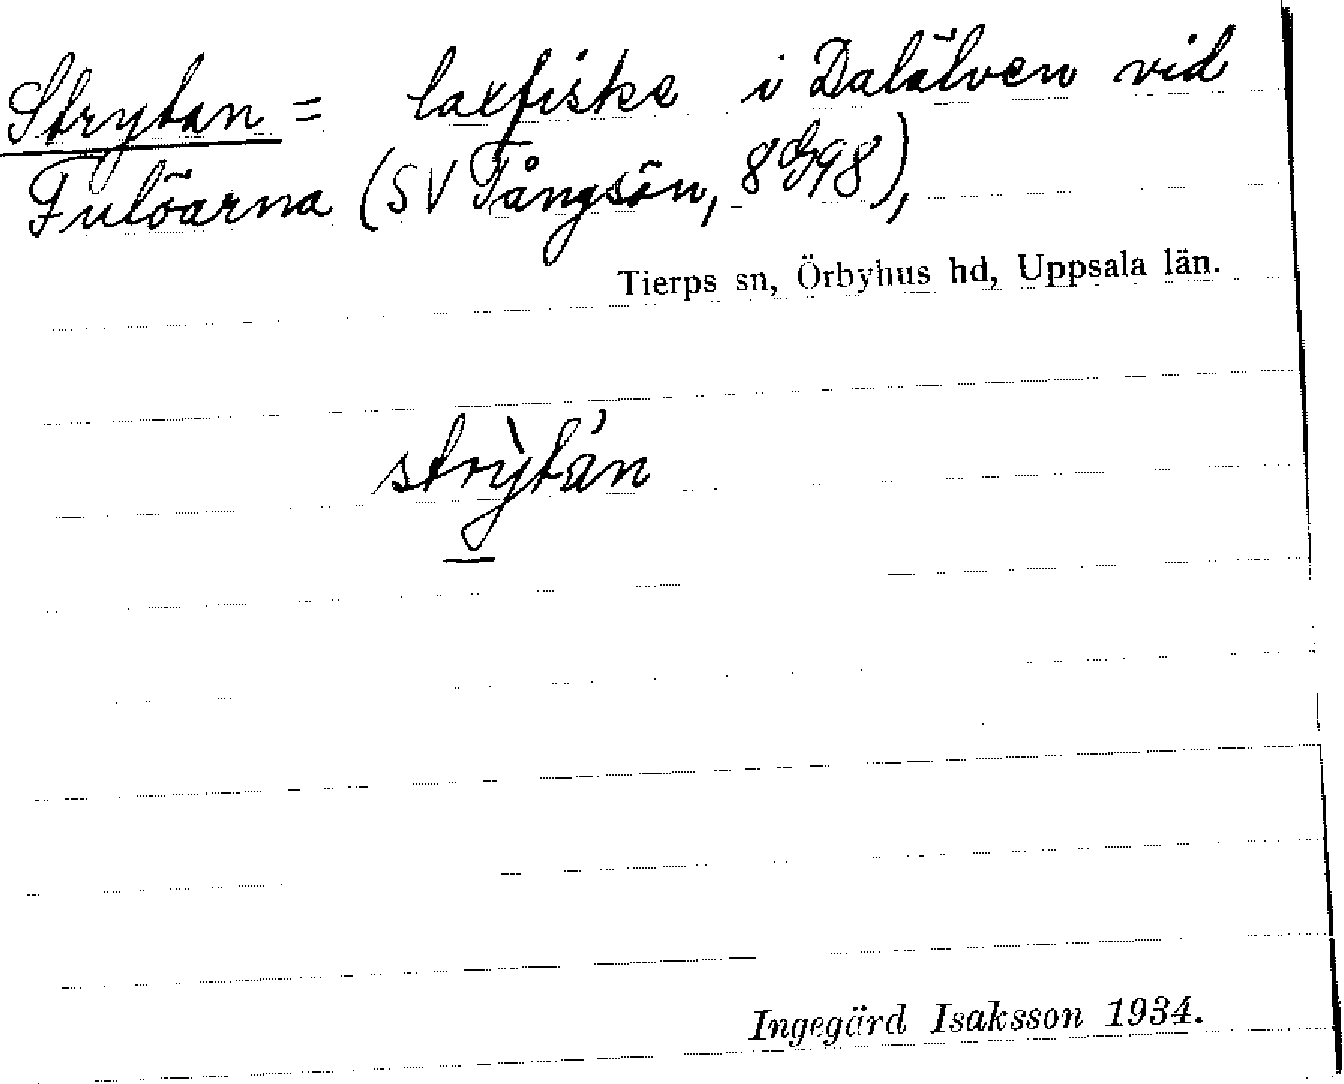 Strytan = laxfiske i Dalälven vid
Fulöarna (SV Tångsön, 8G98),
Tierps sn, Örbyhus hd, Uppsala län.
strỳtán
Ingegärd Isaksson 1934.